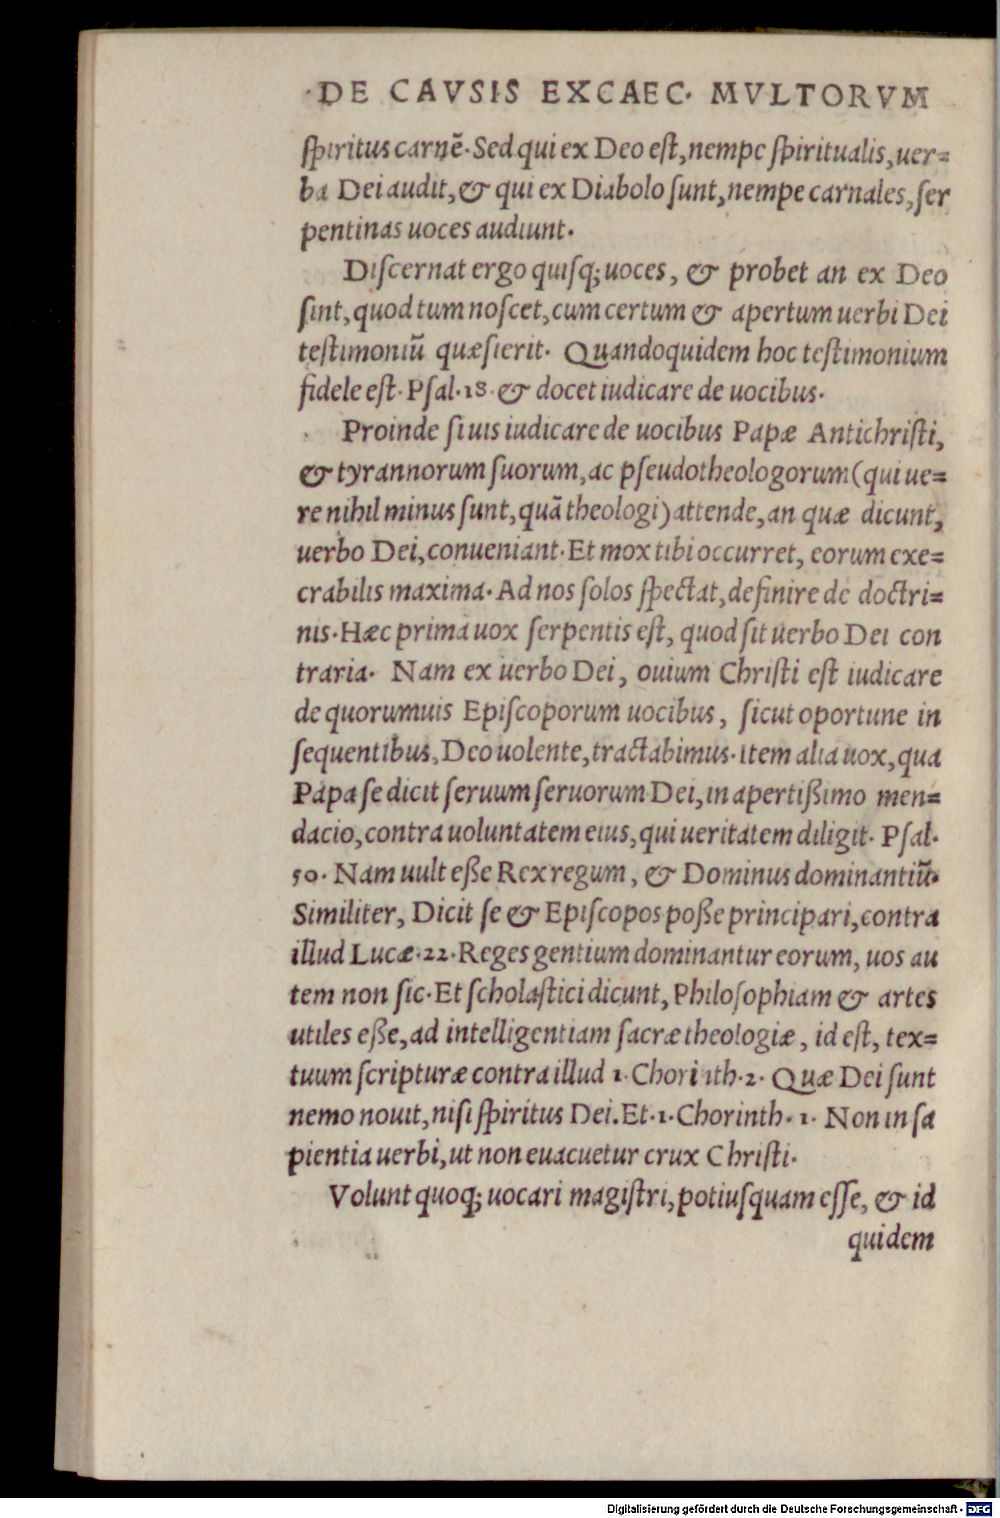 ·DE CAVSIS EXCAEC· MVLTORVM
ſpiritus carnẽ·Sed qui ex Deo eſt,nempe ſpiritualis,uer=
ba Dei audit,& qui ex Diabolo ſunt,nempe carnales,ſer
pentinas uoces audiunt·
Diſcernat ergo quiſq; uoces, & probet an ex Deo
ſint,quod tum noſcet,cum certum & apertum uerbi Dei
teſtimoniũ quæſierit· Quandoquidem hoc teſtimonium
fidele eſt·Pſal·18·& docet iudicare de uocibus·
Proinde ſi uis iudicare de uocibus Papæ Antichriſti,
& tyrannorum ſuorum,ac pſeudotheologorum(qui ue=
re nihil minus ſunt,quã theologi)attende,an quæ dicunt,
uerbo Dei,conueniant·Et mox tibi occurret, eorum exe=
crabilis maxima·Ad nos ſolos ſpectat,definire de doctri=
nis·Hæc prima uox ſerpentis eſt, quod ſit uerbo Dei con
traria· Nam ex uerbo Dei, ouium Chriſti eſt iudicare
de quorumuis Epiſcoporum uocibus, ſicut oportune in
ſequentibus,Deo uolente,tractabimus·item alia uox,qua
Papa ſe dicit ſeruum ſeruorum Dei,in apertißimo men=
dacio,contra uoluntatem eius,qui ueritatem diligit· Pſal·
50· Nam uult eße Rex regum, & Dominus dominantiũ·
Similiter, Dicit ſe & Epiſcopos poße principari,contra
illud Lucæ·22·Reges gentium dominantur eorum, uos au
tem non ſic·Et ſcholaſtici dicunt, Philoſophiam & artes
utiles eße,ad intelligentiam ſacræ theologiæ, id eſt, tex=
tuum ſcripturæ contra illud 1·Chorinth·2· Quæ Dei ſunt
nemo nouit,niſi ſpiritus Dei.Et·1·Chorinth·1· Non in ſa
pientia uerbi,ut non euacuetur crux Chriſti·
Volunt quoq; uocari magiſtri,potiuſquam eſſe, & id
quidem
Digitalisierung gefördert durch die Deutsche Forschungsgemeinschaft - DFG